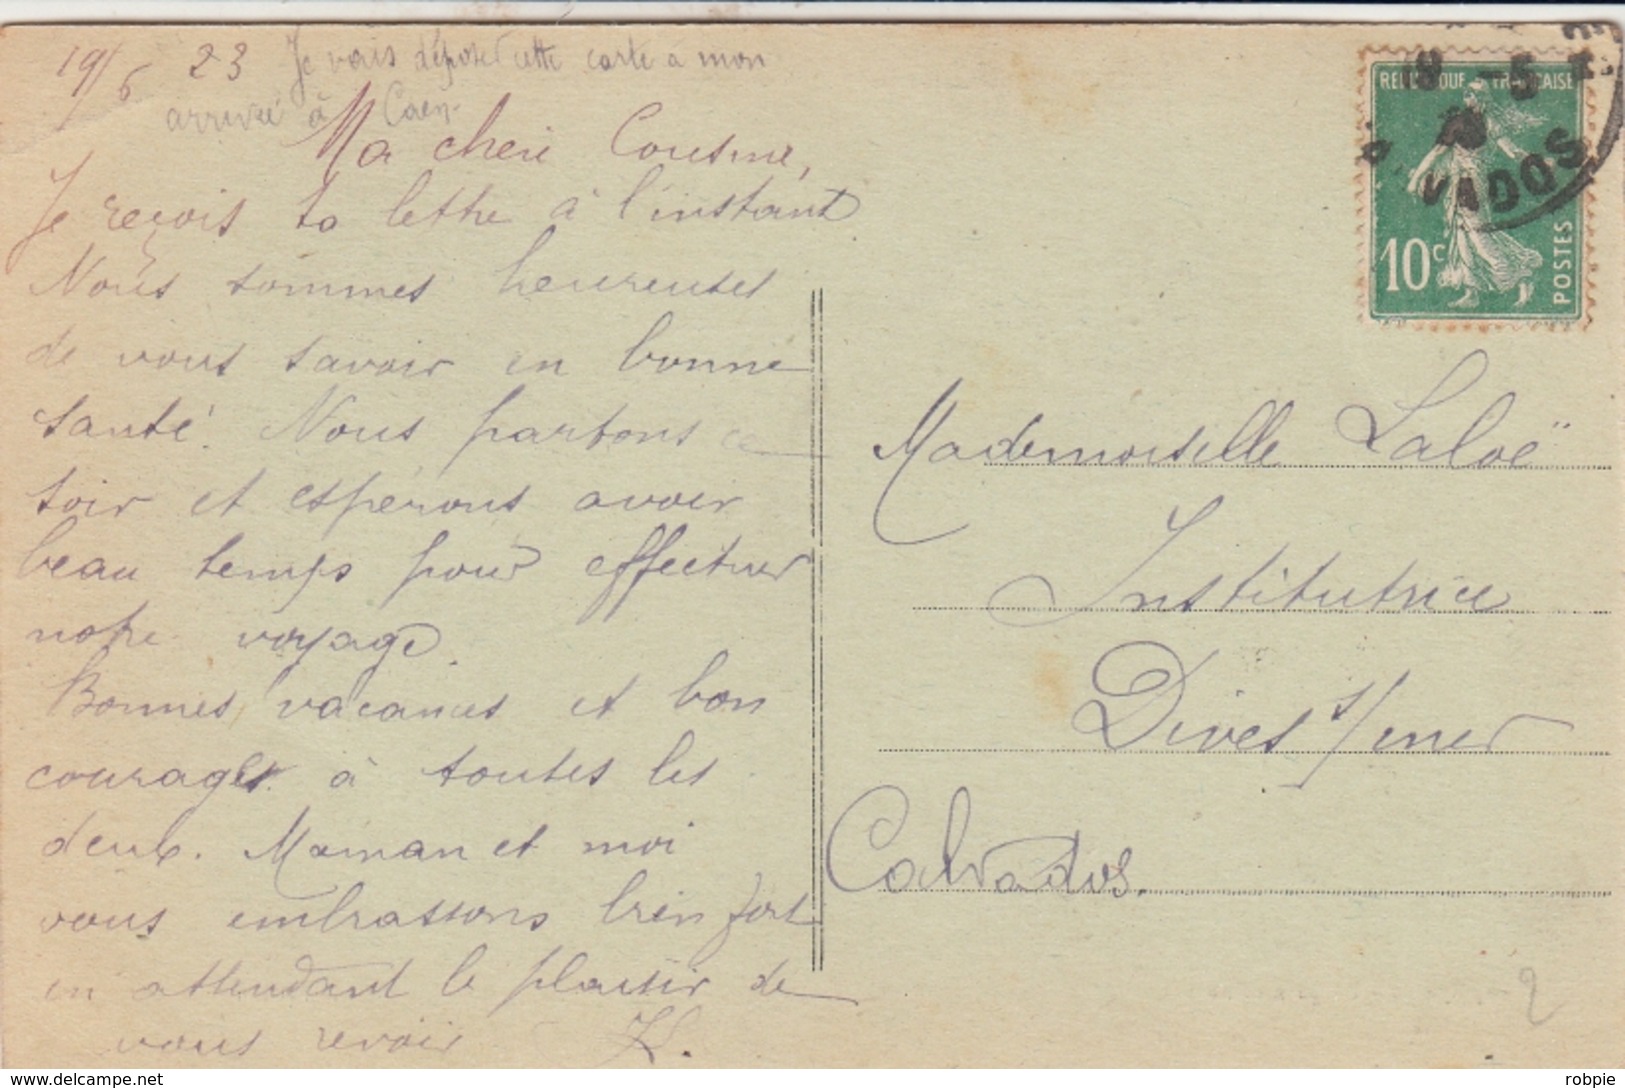 19/5 23 Je vais déposer cette carte a mon
arrivée à Caen
Ma cheri Cousine,
Je reçois ta lettre à l'instant
Nous sommes heureuses
de vous savoir en bonne
santé. Nous partons ce
soir et espérons avoir
beau temps pour effectuer
notre voyage.
Bonnes vacances et bon
courage à toutes les
deux. Maman et moi
vous embrassons bien fort
en attendant le plaisir de
vous revoir
REPUBLIQUE FRANÇAISE
10c
POSTES
VADOS
Mademoiselle Laloë
Institutrice
Dives s/mer
Calvados.
2
www.delcampe.net
robpie